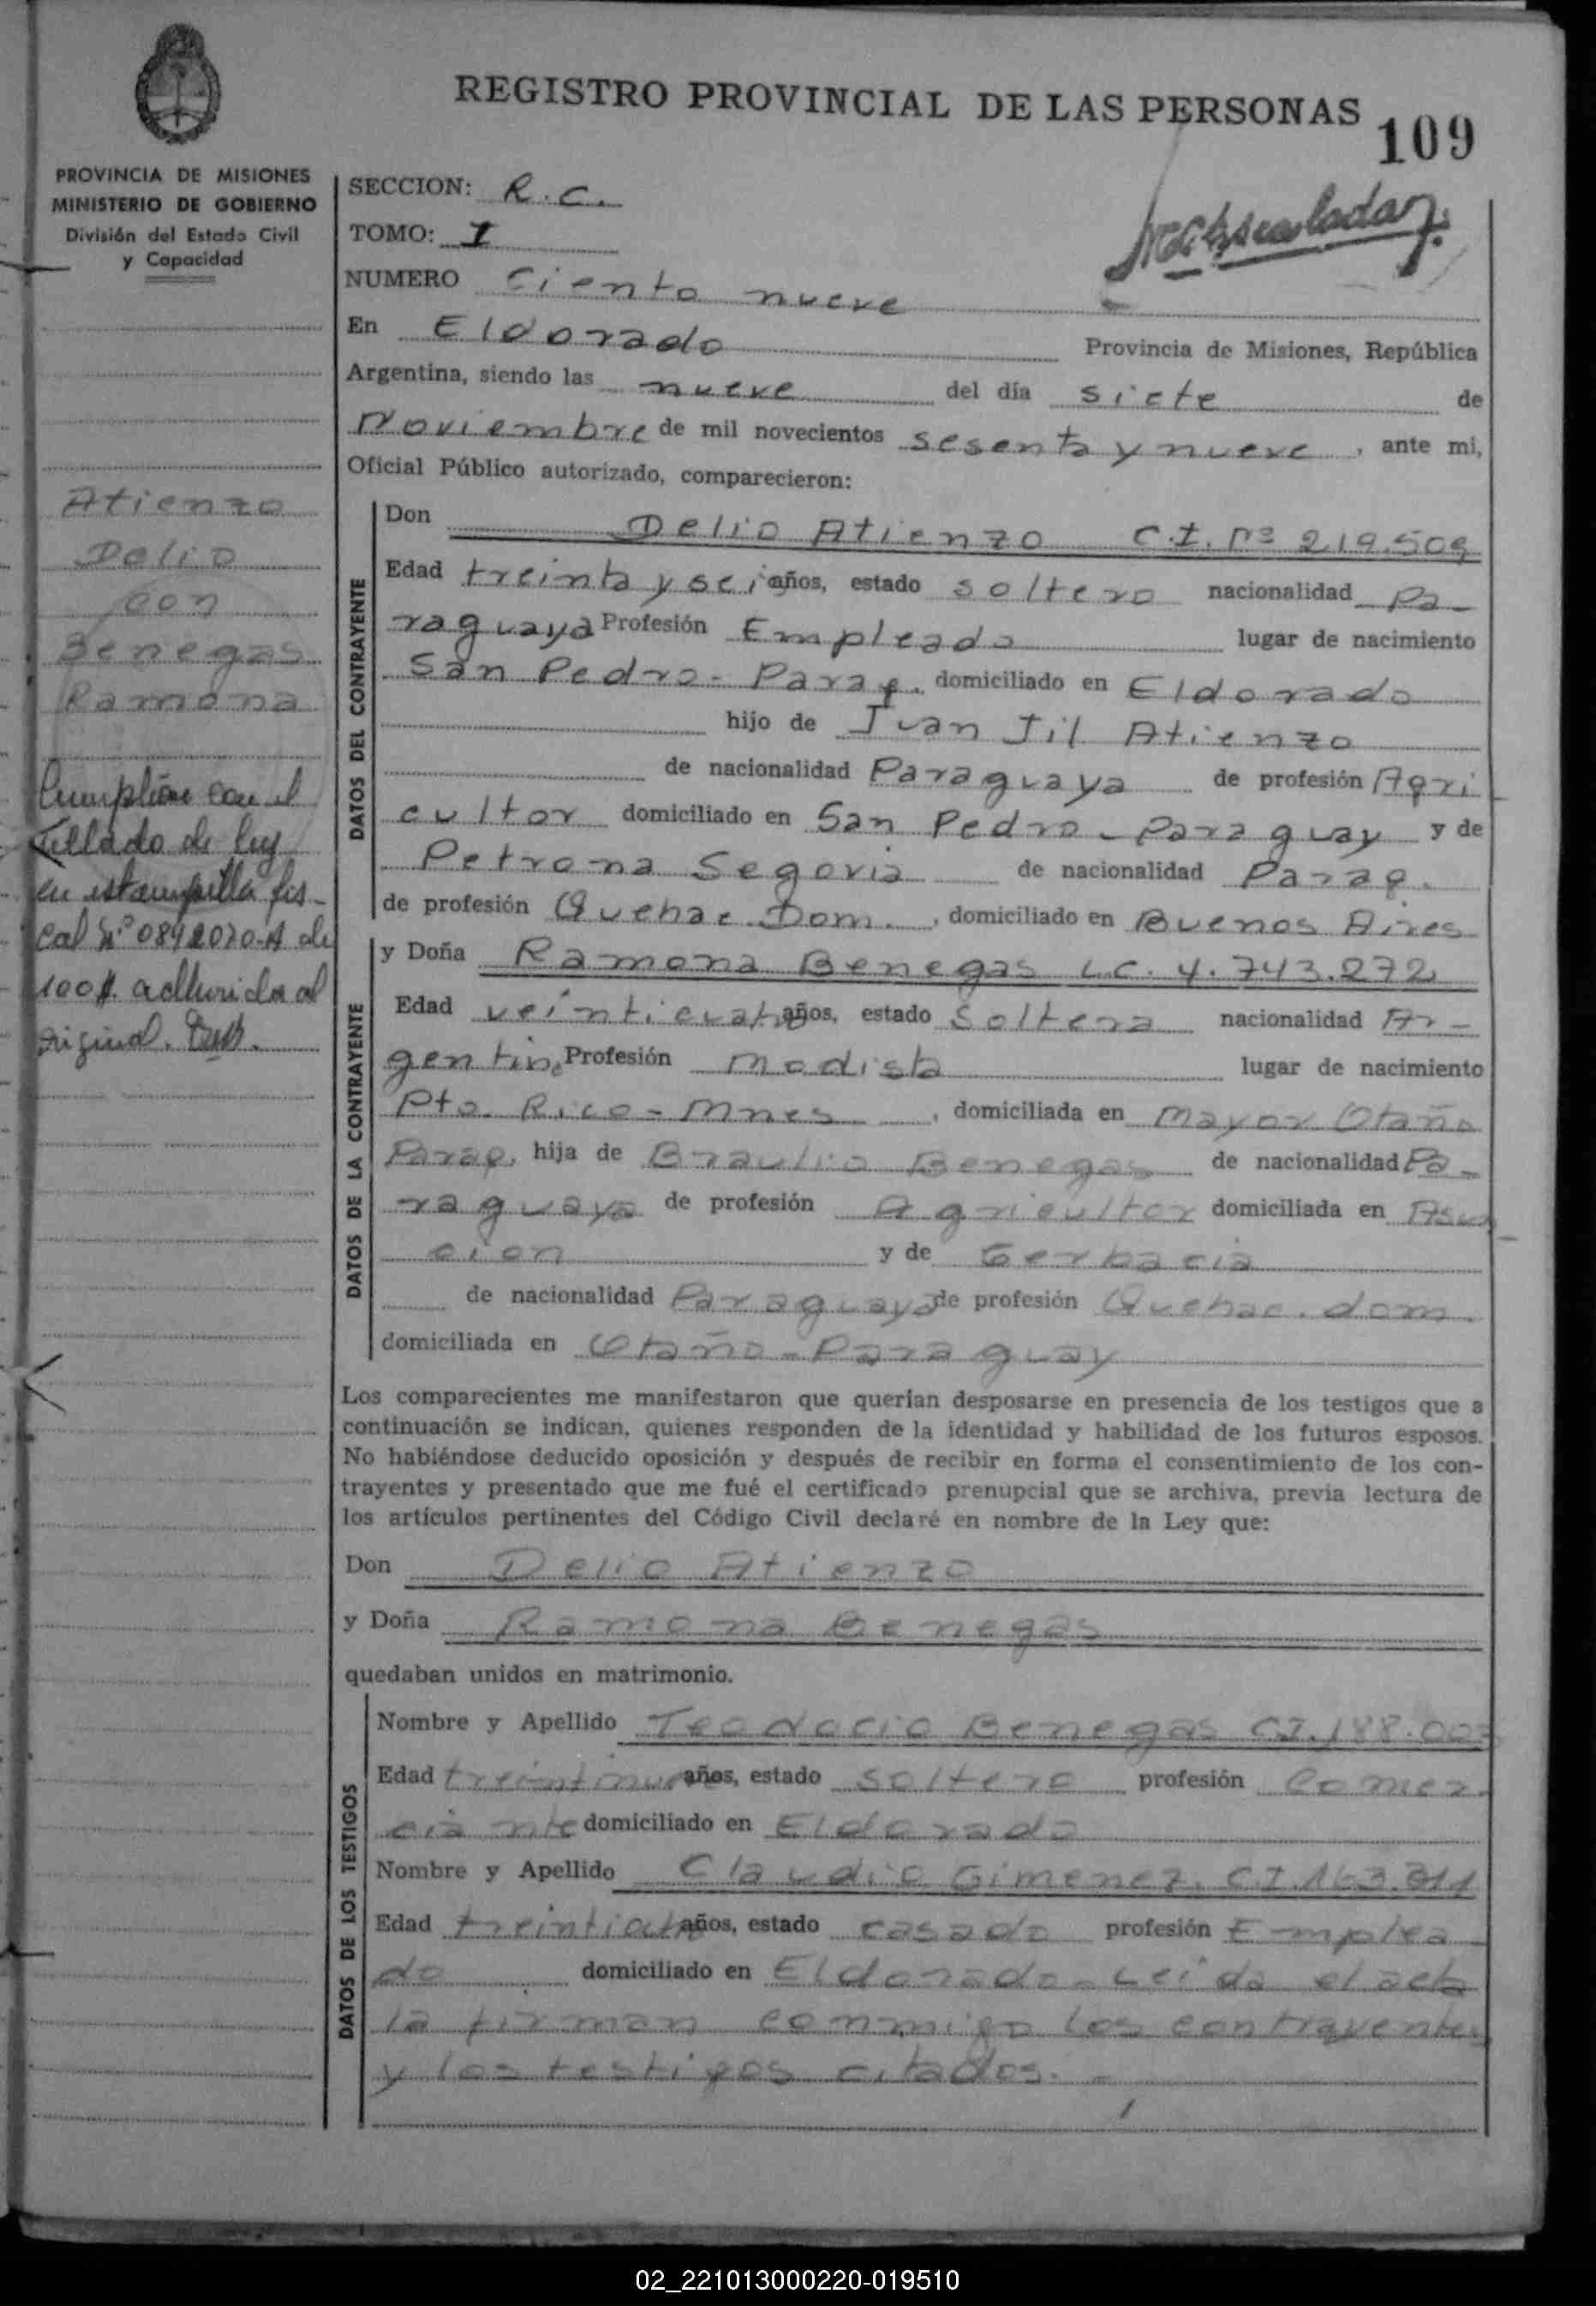 REGISTRO PROVINCIAL DE LAS PERSONAS
109
PROVINCIA DE MISIONES
MINISTERIO DE GOBIERNO
División del Estado Civil
y Capacidad
Atienzo
Delio
con
Benegas
Ramona
Cumplióse con el
sellado de ley
en estampilla fis-
cal Nº 0842020-A de
100 $. adherida al
original.
SECCION: R.C.
TOMO: I
NUMERO Ciento nueve
En Eldorado Provincia de Misiones, República
Argentina, siendo las nueve del día siete de
Noviembre de mil novecientos sesenta y nueve, ante mi,
Oficial Público autorizado, comparecieron:
DATOS DEL CONTRAYENTE
Don Delio Atienzo C.I. nº 219.509
Edad treinta y seis años, estado soltero nacionalidad Pa-
raguaya Profesión Empleado lugar de nacimiento
San Pedro - Parag. domiciliado en Eldorado
hijo de Juan Jil Atienzo
de nacionalidad Paraguaya de profesión Agri
cultor domiciliado en San Pedro - Paraguay y de
Petrona Segovia de nacionalidad Parag.
de profesión Quehac. Dom., domiciliado en Buenos Aires
DATOS DE LA CONTRAYENTE
y Doña Ramona Benegas L.C. 4.743.272
Edad veinticuatro años, estado Soltera nacionalidad Ar-
gentina Profesión modista lugar de nacimiento
Pto. Rico - Mnes, domiciliada en Mayor Otaño
Parag. hija de Braulio Benegas de nacionalidad Pa-
raguaya de profesión Agricultor domiciliada en Asun
cion y de Gerbacia
de nacionalidad Paraguaya de profesión Quehac. dom.
domiciliada en Otaño - Paraguay
Los comparecientes me manifestaron que querían desposarse en presencia de los testigos que a
continuación se indican, quienes responden de la identidad y habilidad de los futuros esposos.
No habiéndose deducido oposición y después de recibir en forma el consentimiento de los con-
trayentes y presentado que me fué el certificado prenupcial que se archiva, previa lectura de
los artículos pertinentes del Código Civil declaré en nombre de la Ley que:
Don Delio Atienzo
y Doña Ramona Benegas
quedaban unidos en matrimonio.
DATOS DE LOS TESTIGOS
Nombre y Apellido Teodocio Benegas C.I. 188.003
Edad treintinueve años, estado soltero profesión Comer-
ciante domiciliado en Eldorado
Nombre y Apellido Claudio Gimenez. C.I. 163.311
Edad años, estado casado profesión Emplea
do domiciliado en Eldorado - Leída el acta
la firman conmigo los contrayentes
y los testigos citados. -
02_221013000220-019510